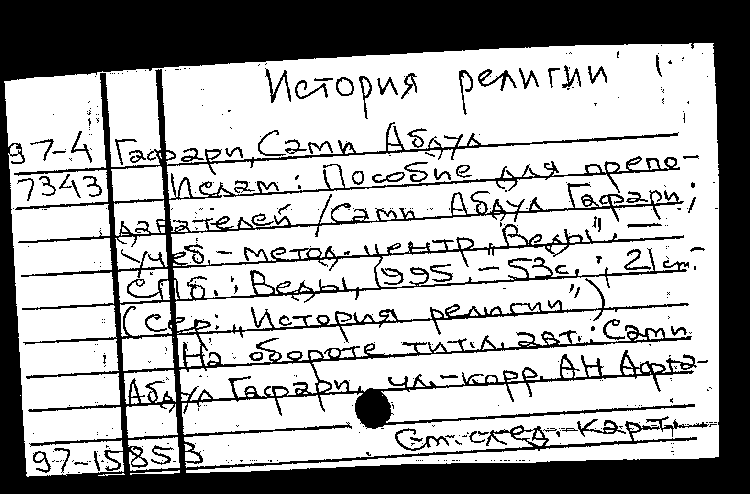 История религии
97-4 Гафари, Сами Абдул
7343 Ислам : Пособие для препо-
давателей / Сами Абдул Гафари;
Учеб.-метод. центр "Веды". —
СПб. : Веды, 1995. - 53с. ; 21 см. -
(Сер.: "История религии").
На обороте тит. л. авт.: Сами
Абдул Гафари, чл.-корр. АН Афга-
См. след. карт.
97-15853